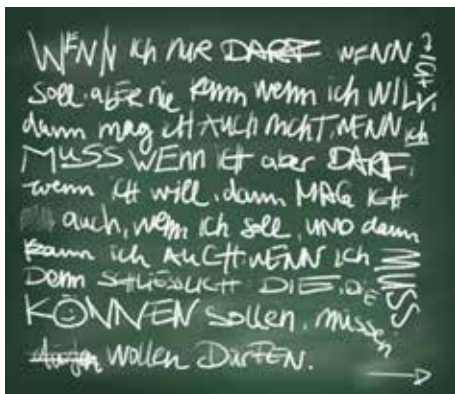 WENN ich NUR DARF WENN ich
soll. aber nie kann wenn ich WILL,
dann mag ICH AUCH NICHT, WENN ich
MUSS WENN ICH aber DARF,
wenn ICH will, dann MAG ICH
auch, wenn ich soll, UND dann
kann ich AUCH. WENN ich MUSS
Denn SCHLIESSLICH DIE, DIE
KÖNNEN sollen, müssen
wollen DÜRFEN.